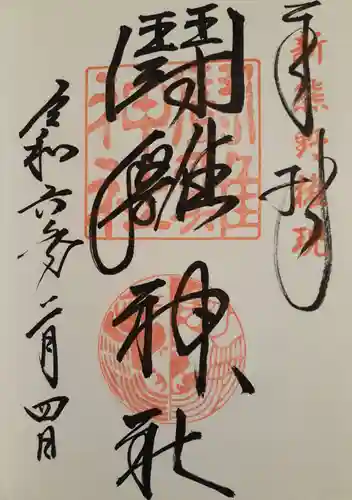 奉拝
新熊野権現
闘雞神社
闘雞神社
令和六年二月四日